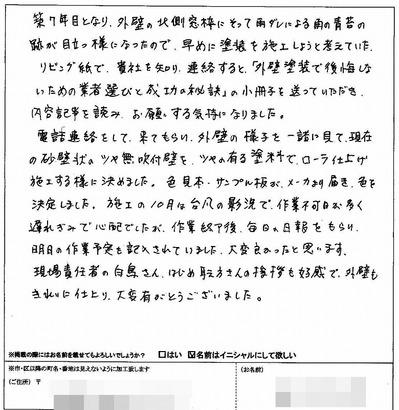 築7年目となり、外壁の北側窓枠にそって雨ダレによる雨の青苔の
跡が目立つ様になったので、早めに塗装を施工しようと考えていた。
リビング紙で、貴社を知り、連絡すると、「外壁塗装で後悔しな
いための業者選びと成功の秘訣」の小冊子を送っていただき、
内容記事を読み、お願いする気持になりました。
電話連絡をして、来てもらい、外壁の様子を一諸に見て、現在
の砂壁状のツヤ無吹付壁を、ツヤの有る塗料で、ローラ仕上げ
施工する様に決めました。色見本・サンプル板が、メーカより届き、色を
決定しました。施工の10月は台風の影況で、作業不可日が多く
遅れぎみで心配でしたが、作業終了後、毎日の日報をもらい、
明日の作業予定も記入されていました。大変良かったと思います。
現場責任者の白鳥さん、はじめ取方さんの挨拶も好感で、外壁も
きれいに仕上り、大変有がとうございました。
※掲載の際にはお名前を載せてもよろしいでしょうか? □はい ☑名前はイニシャルにして欲しい
※市・区以降の町名・番地は見えないように加工致します
(ご住所) 〒
(お名前)